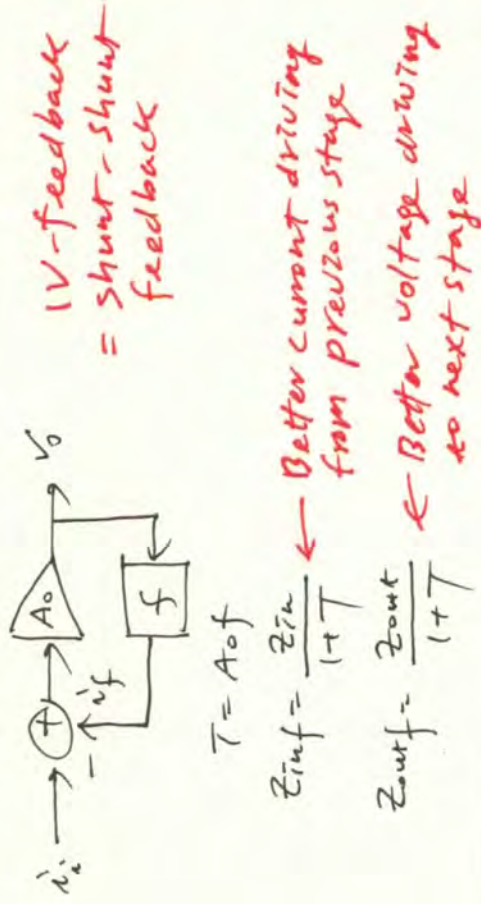 IV-feedback
= shunt-shunt
feedback
i_i + A_o V_o
- i_f f
T = A_o f
Z_inf = Z_in / (1+T) ← Better current driving
from previous stage
Z_outf = Z_out / (1+T) ← Better voltage driving
to next stage